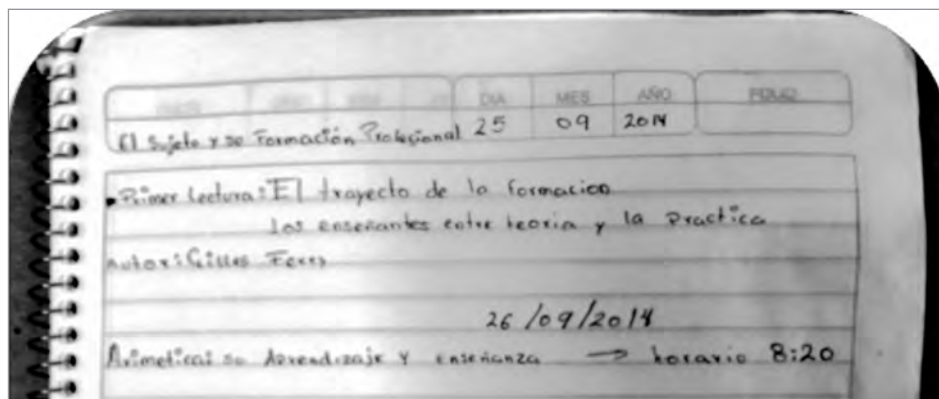 DIA MES AÑO FOLIO
El Sujeto y so Formación Profesional 25 09 2014
Primer Lectura: El trayecto de la formacion
los enseñantes entre teoria y la Practica
Autor: Gilles Ferry
26/09/2014
Arimetica: so Aprendizaje y enseñanza → horario 8:20